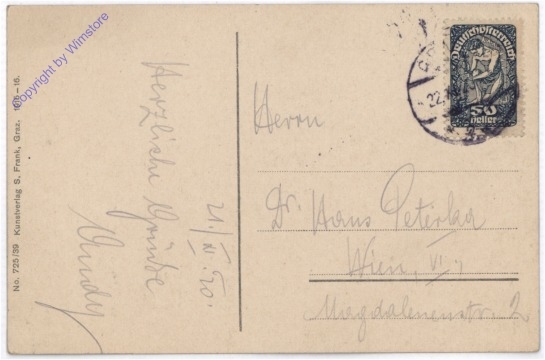 No. 725/39 Kunstverlag S. Frank, Graz. 1915-16.
Copyright by Wimstore
Herzliche Grüße
21./XI. 20.
Deutschösterreich
50
Heller
22.
Herrn
Dr. Hans Peterka
Wien, VI.,
Magdalenenstr. 2